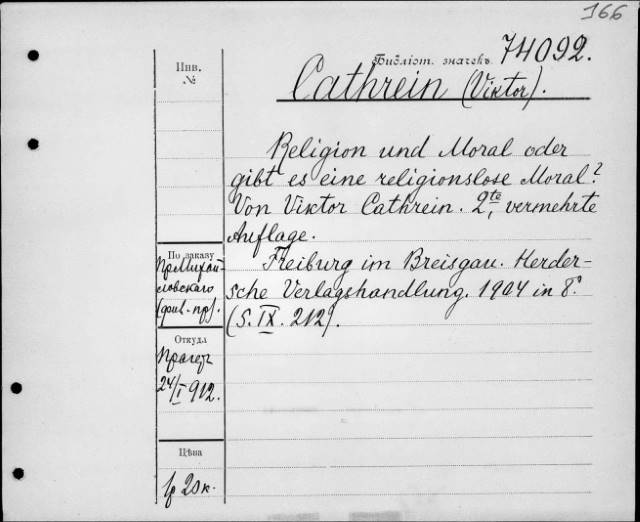 166
Библіот. значекъ 74092.
Инв.
№
Cathrein (Viktor).
Religion und Moral oder
gibt es eine religionslose Moral?
Von Viktor Cathrein. 2te, vermehrte
Auflage.
Freiburg im Breisgau. Herder-
sche Verlagshandlung. 1904 in 8°.
(S. IX. 212).
По заказу
Пр. Михай-
ловскаго
Откуда
24/I 912.
Цѣна
1р 20к.